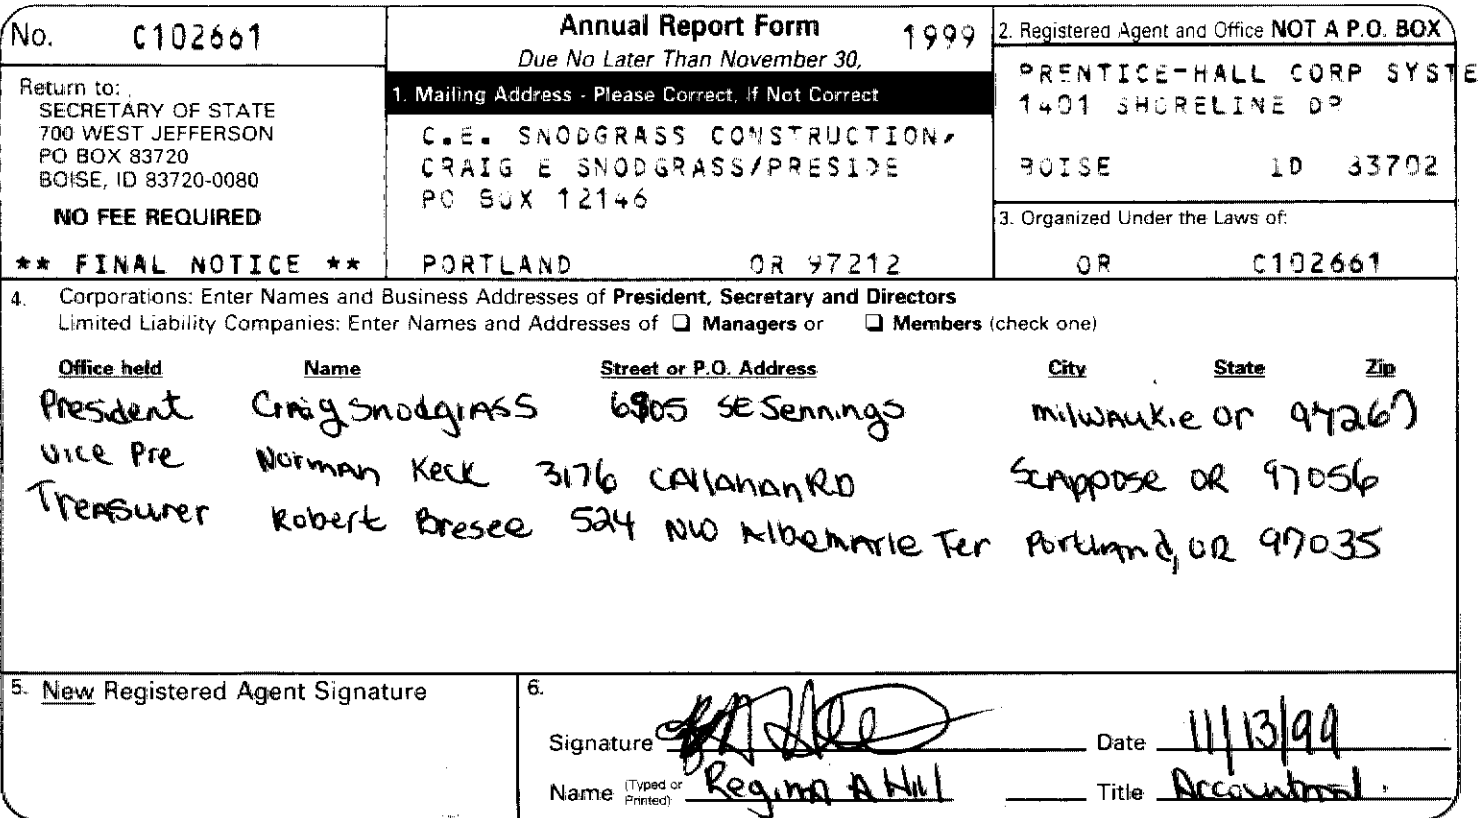 No. C102661
Annual Report Form 1999
Due No Later Than November 30,
Return to:
SECRETARY OF STATE
700 WEST JEFFERSON
PO BOX 83720
BOISE, ID 83720-0080
NO FEE REQUIRED
** FINAL NOTICE **
1. Mailing Address - Please Correct, If Not Correct
C.E. SNODGRASS CONSTRUCTION,
CRAIG E SNODGRASS/PRESIDE
PO BOX 12146
PORTLAND OR 97212
2. Registered Agent and Office NOT A P.O. BOX
PRENTICE-HALL CORP SYSTE
1401 SHORELINE DR
BOISE ID 83702
3. Organized Under the Laws of:
OR C102661
4. Corporations: Enter Names and Business Addresses of President, Secretary and Directors
Limited Liability Companies: Enter Names and Addresses of ❑ Managers or ❑ Members (check one)
Office held Name Street or P.O. Address City State Zip
President Craig Snodgrass 6905 SE Jennings Milwaukie Or 97267
Vice Pre Norman Keck 3176 Callahan RD Scappose OR 97056
Treasurer Robert Bresee 524 NW Albemarle Ter Portland, OR 97035
5. New Registered Agent Signature
6.
Signature Date 11/13/99
Name (Typed or Printed) Regina A Hill Title Accountant